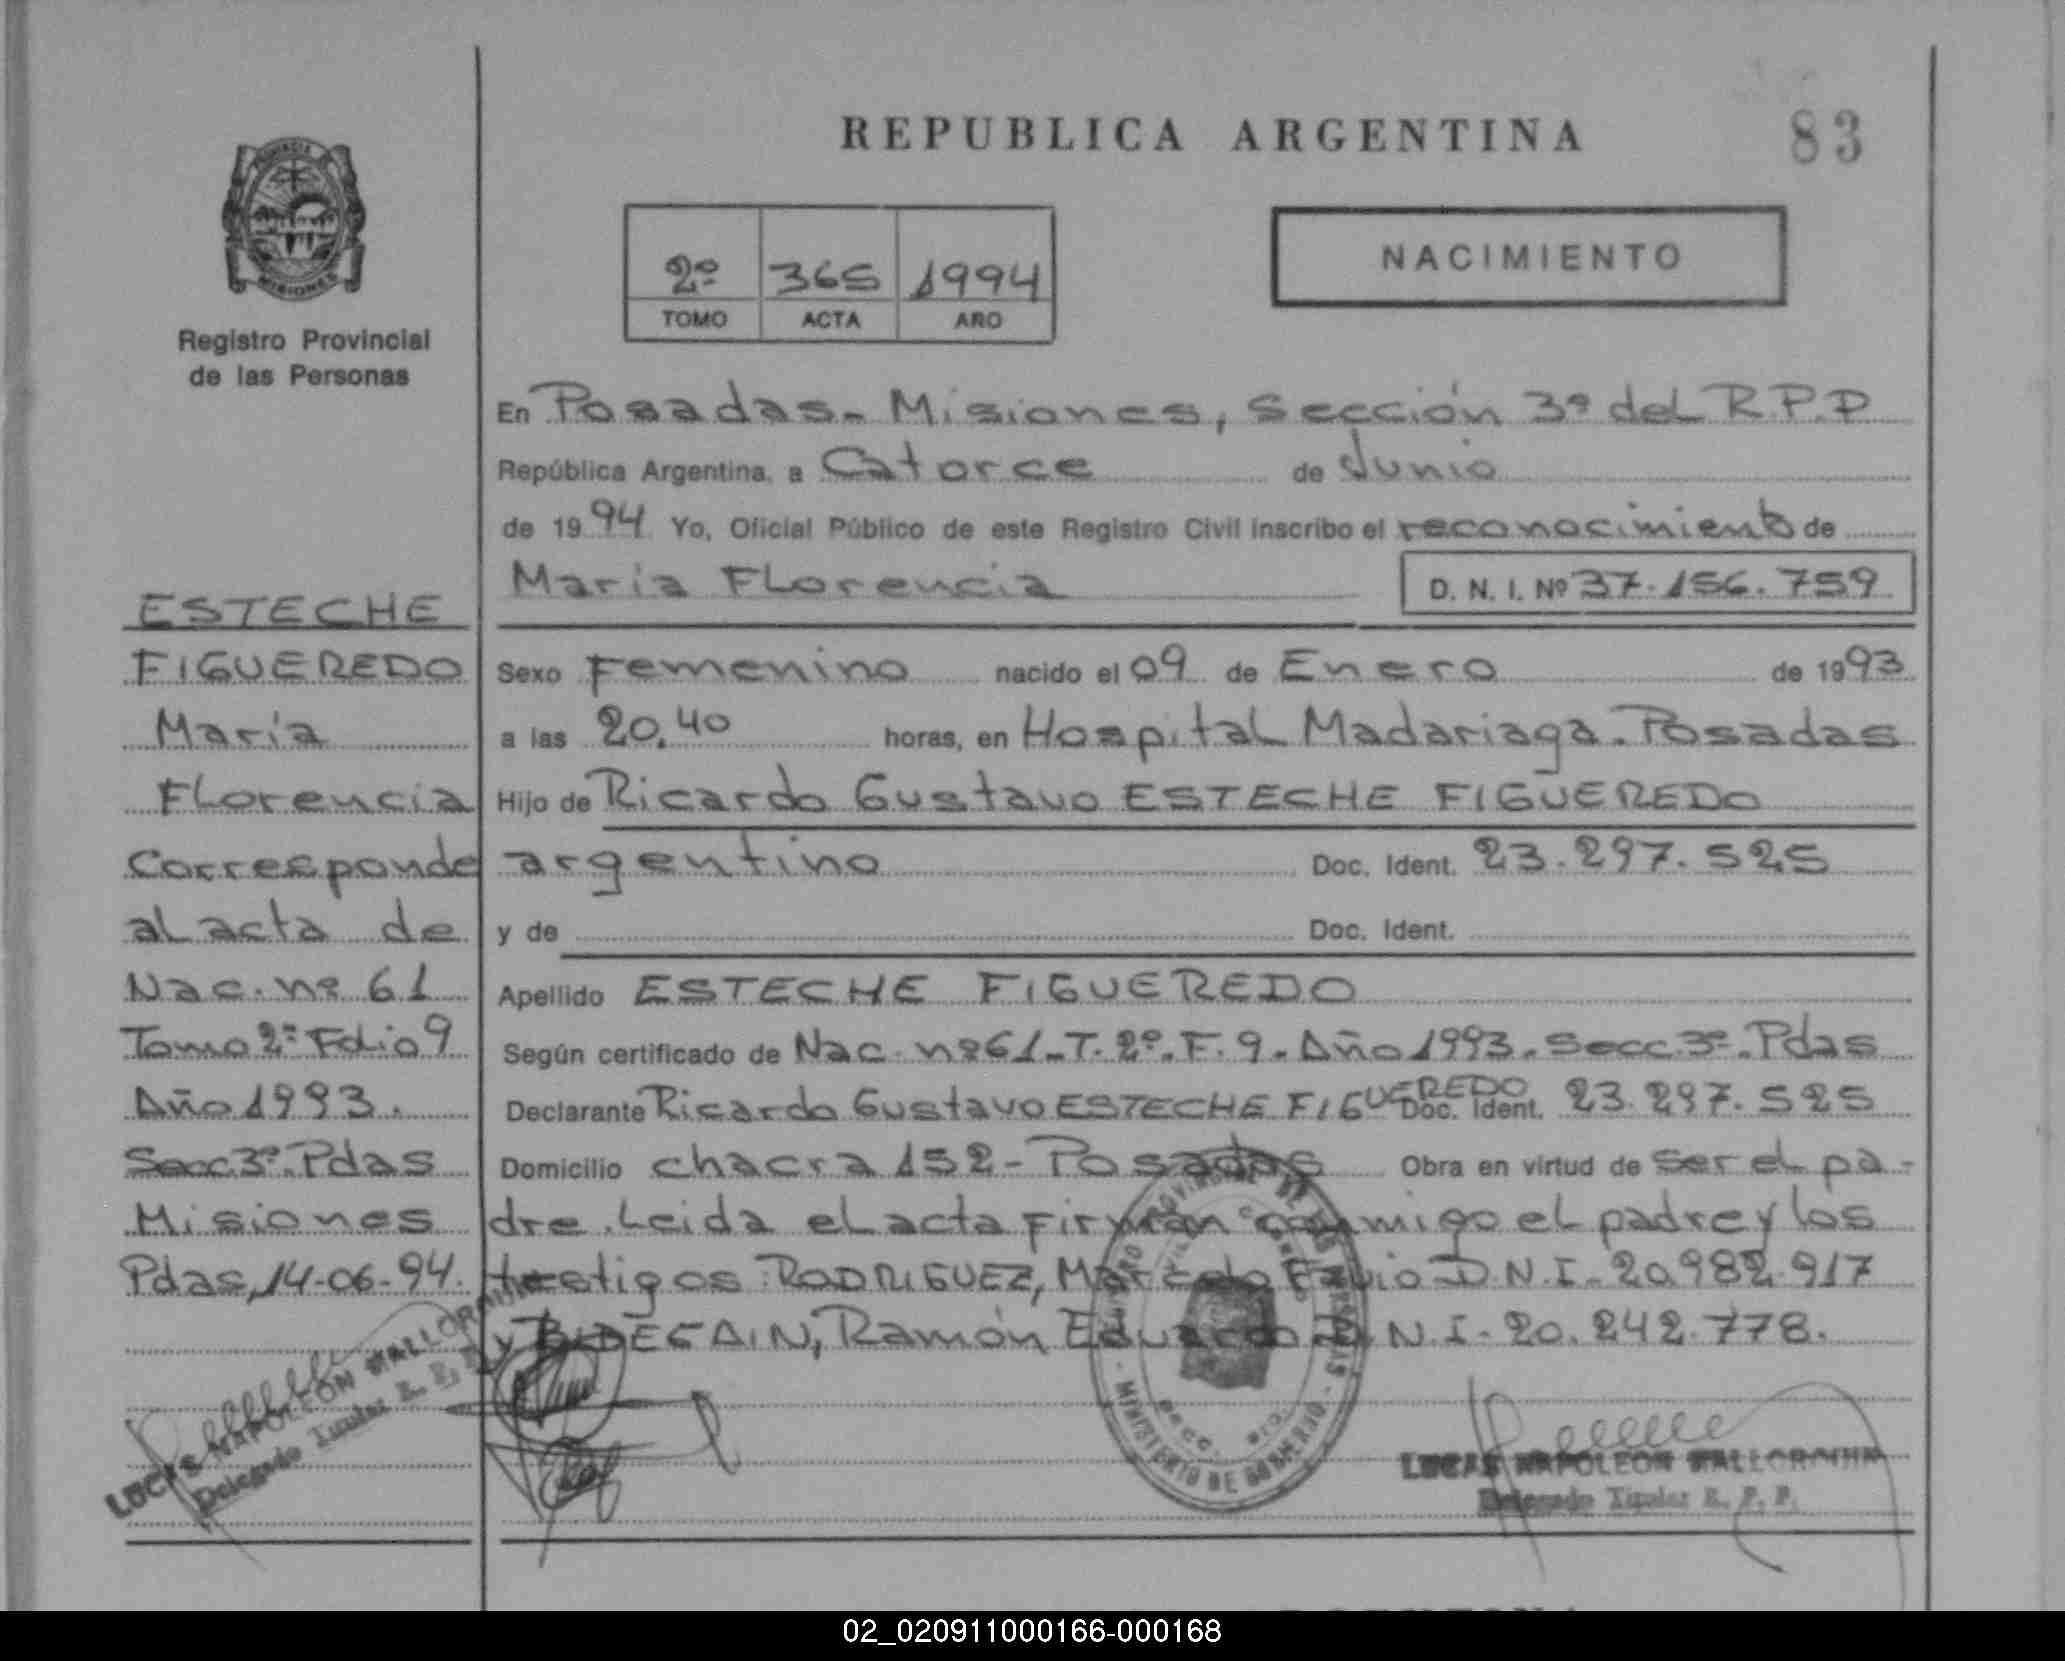 REPUBLICA ARGENTINA
83
2º 365 1994
TOMO ACTA AÑO
NACIMIENTO
PROVINCIA DE
MISIONES
Registro Provincial
de las Personas
En Posadas - Misiones, Sección 3º del R.P.P
República Argentina, a Catorce de Junio
de 1994 Yo, Oficial Público de este Registro Civil inscribo el reconocimiento de
María Florencia D. N. I. Nº 37.156.759
Sexo Femenino nacido el 09 de Enero de 1993
a las 20.40 horas, en Hospital Madariaga. Posadas
Hijo de Ricardo Gustavo ESTECHE FIGUEREDO
argentino Doc. Ident. 23.297.525
y de Doc. Ident.
Apellido ESTECHE FIGUEREDO
Según certificado de Nac. nº 61 - T. 2º. F. 9 - Año 1993. Secc. 3º. Pdas
Declarante Ricardo Gustavo ESTECHE FIGUEREDO Doc. Ident. 23.297.525
Domicilio chacra 152 - Posadas Obra en virtud de ser el pa-
dre. Leida el acta firman conmigo el padre y los
testigos: RODRIGUEZ, Marcelo Fabio D.N.I. 20.982.917
y BIDEGAIN, Ramón Eduardo D.N.I. 20.242.778.
ESTECHE
FIGUEREDO
María
Florencia
Corresponde
al acta de
Nac. nº 61
Tomo 2º Folio 9
Año 1993.
Secc. 3º. Pdas
Misiones
Pdas, 14-06-94.
LUCAS NAPOLEON
Delegado Titular R. P. P.
MINISTERIO DE GOBIERNO
LUCAS NAPOLEON
Delegado Titular R. P. P.
02_020911000166-000168